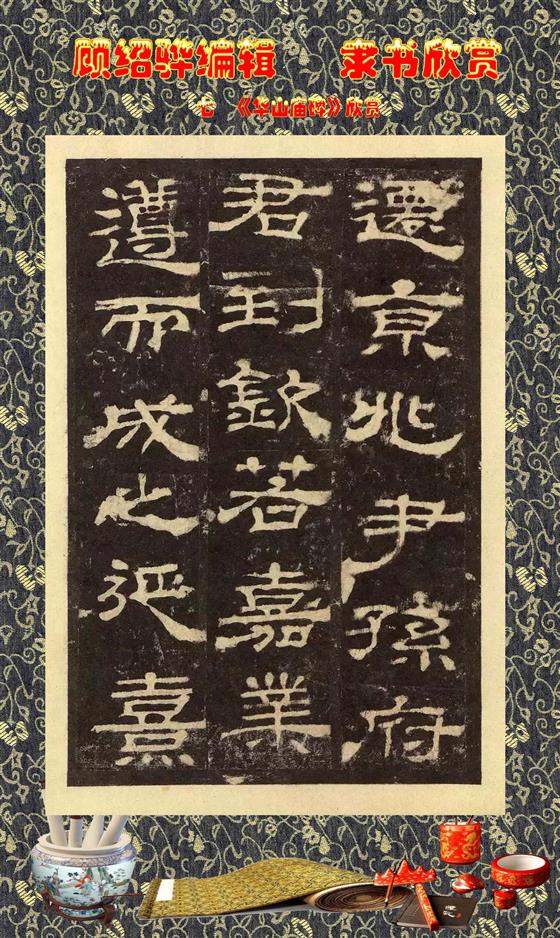 顾绍骅编辑 隶书欣赏
心 《华山庙碑》欣赏
遷京兆尹孫府
君到欽若嘉業
遵而成之延熹